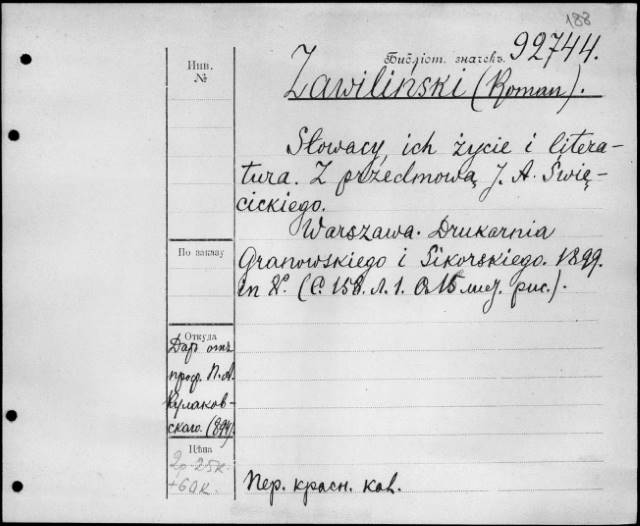 188
Библіот. значекъ. 92744.
Инв.
№
Zawiliński (Roman).
Słowacy, ich życie i litera-
tura. Z przedmową J. A. Świę-
cickiego.
Warszawa. Drukarnia
Granowskiego i Sikorskiego. 1899.
in 8º. (С. 158. л. 1. Съ 15 рис.).
По заказу
Откуда
Даръ отъ
проф. П. А.
Кулаков-
скаго.
Цѣна
2р. 25к.
+60к.
Пер. красн. кол.